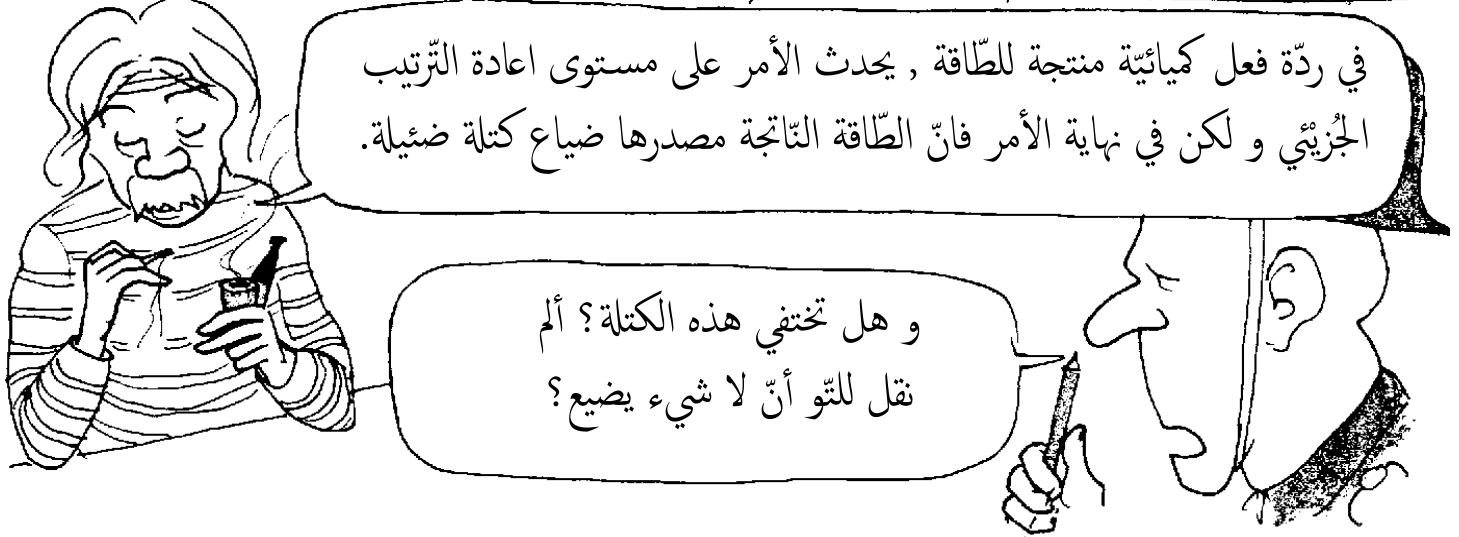 في ردّة فعل كميائيّة منتجة للطّاقة , يحدث الأمر على مستوى اعادة التّرتيب
الجُزيْئي و لكن في نهاية الأمر فانّ الطّاقة النّاتجة مصدرها ضياع كتلة ضئيلة.
و هل تختفي هذه الكتلة؟ ألم
نقل للتّو أنّ لا شيء يضيع؟